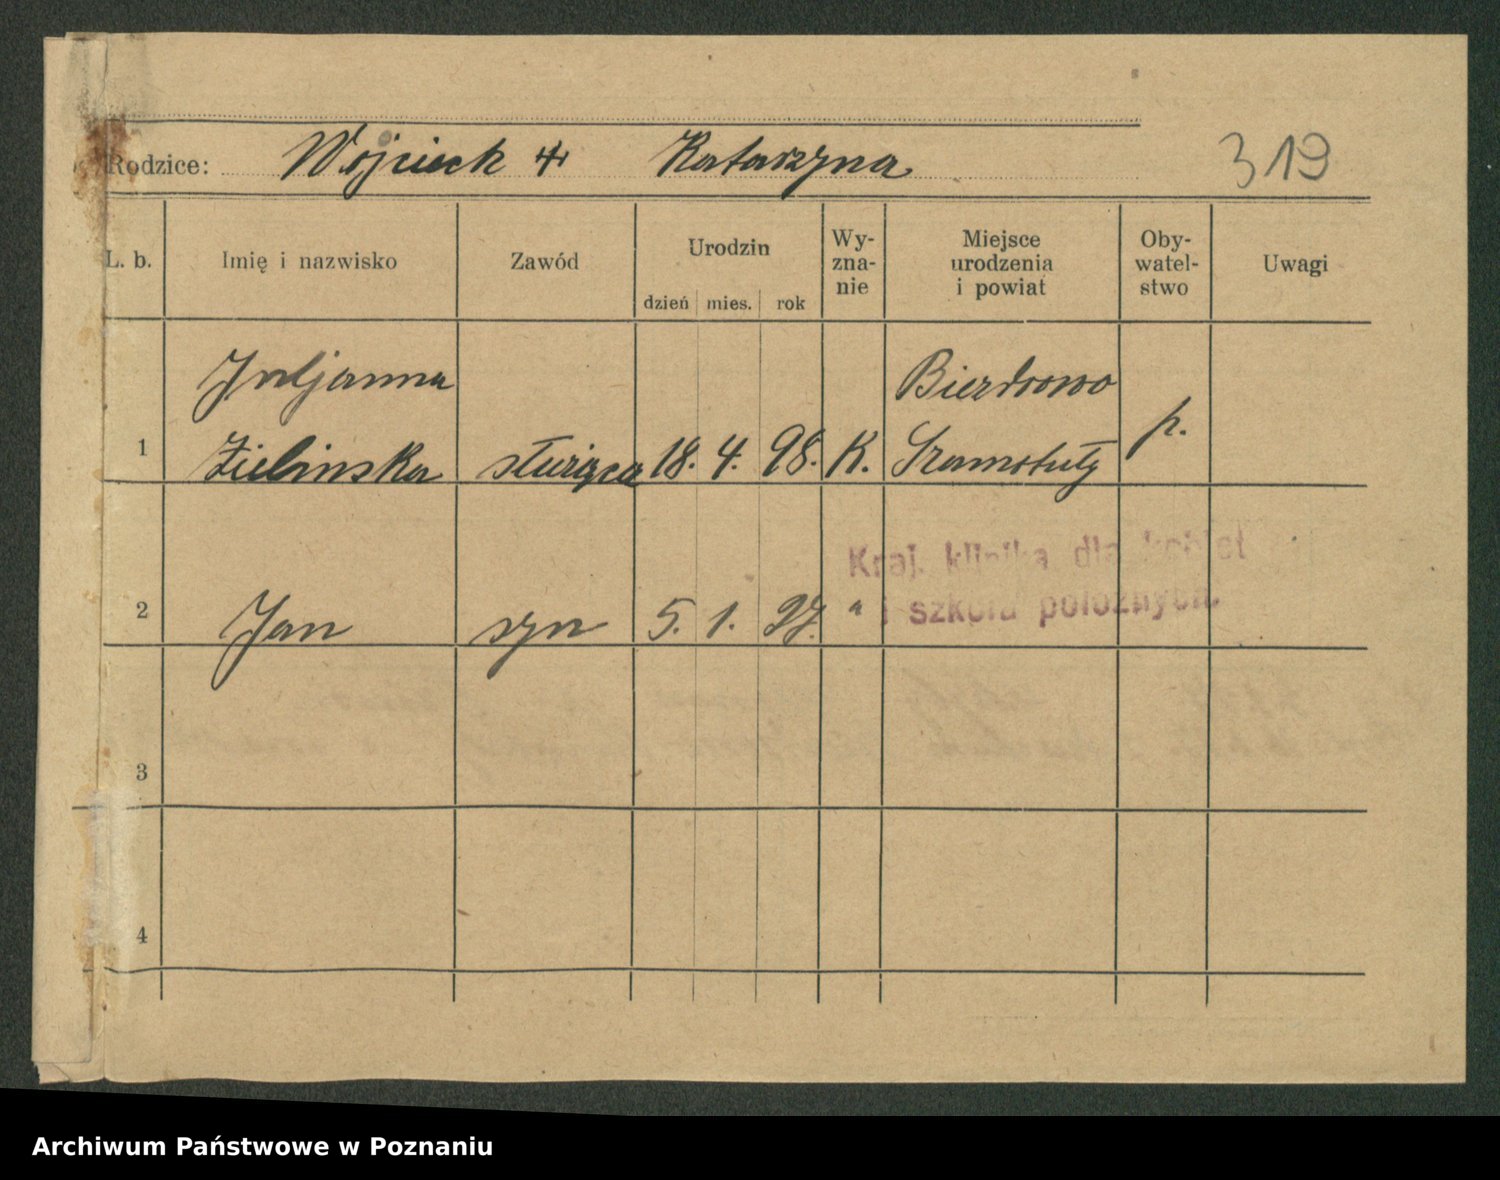 Rodzice: Wojciech + Katarzyna
319
L. b. Imię i nazwisko Zawód Urodzin dzień mies. rok Wy-zna-nie Miejsce urodzenia i powiat Oby-watel-stwo Uwagi
Juljanna Bierdrowo
1 Zielinska służąca 18. 4. 98. K. Szamotuły p.
Kraj. klinika dla kobiet
i szkoła położnych.
2 Jan syn 5. 1. 27. "
3
4
Archiwum Państwowe w Poznaniu